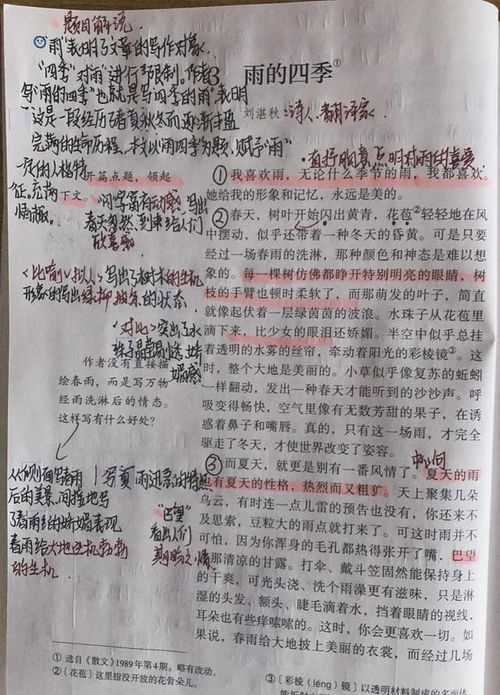 题目解说
"雨"表明了文章的写作对象.
"四季"对"雨"进行了限制。作者
写"雨的四季"也就是写四季的雨"表明
这是一段经历了春夏秋冬而逐渐丰盈
完满的生命历程,
3 雨的四季①
刘湛秋:诗人、翻译家
直抒胸臆点明对雨的喜爱
开篇点题,领起
下文。
①我喜欢雨,无论什么季节的雨,我都喜欢。
她给我的形象和记忆,永远是美的。
②春天,树叶开始闪出黄青,花苞②轻轻地在风
中摆动,似乎还带着一种冬天的昏黄。可是只要
经过一场春雨的洗淋,那种颜色和神态是难以想
象的。每一棵树仿佛都睁开特别明亮的眼睛,树
枝的手臂也顿时柔软了,而那萌发的叶子,简直
就像起伏着一层绿茵茵的波浪。水珠子从花苞里
滴下来,比少女的眼泪还娇媚。半空中似乎总挂
着透明的水雾的丝帘,牵动着阳光的彩棱镜③。这
时,整个大地是美丽的。小草似乎像复苏的蚯蚓
一样翻动,发出一种春天才能听到的沙沙声。呼
吸变得畅快,空气里像有无数芳甜的果子,在诱
惑着鼻子和嘴唇。真的,只有这一场雨,才完全
驱走了冬天,才使世界改变了姿容。
<比喻><拟人>写出了树木的生机
<对比>突出了水
作者没有直接描
绘春雨,而是写万物
经雨洗淋后的情态。
这样写有什么好处?
从侧面写春雨
后的美景,间接地写
了春雨的娇媚,表现
春雨给大地生机勃勃
的生机.
写夏雨迅急的特点
"巴望"
看出人们
期盼之情
中心句
③而夏天,就更是别有一番风情了。夏天的雨
也有夏天的性格,热烈而又粗犷。天上聚集几朵
乌云,有时连一点儿雷的预告也没有,你还来不
及思索,豆粒大的雨点就打来了。可这时雨并不
可怕,因为你浑身的毛孔都热得张开了嘴,巴望
着那清凉的甘露。打伞、戴斗笠固然能保持身上
的干爽,可光头浇、洗个雨澡更有滋味,只是淋
湿的头发、额头、睫毛滴着水,挡着眼睛的视线,
耳朵也有些痒嗦嗦的。这时,你会更喜欢一切。如
果说,春雨给大地披上美丽的衣裳,而经过几场
①选自《散文》1989年第4期。略有改动。
②〔花苞〕这里指没开放的花骨朵儿。
③〔彩棱(léng)镜〕以透明材料制成的多面体